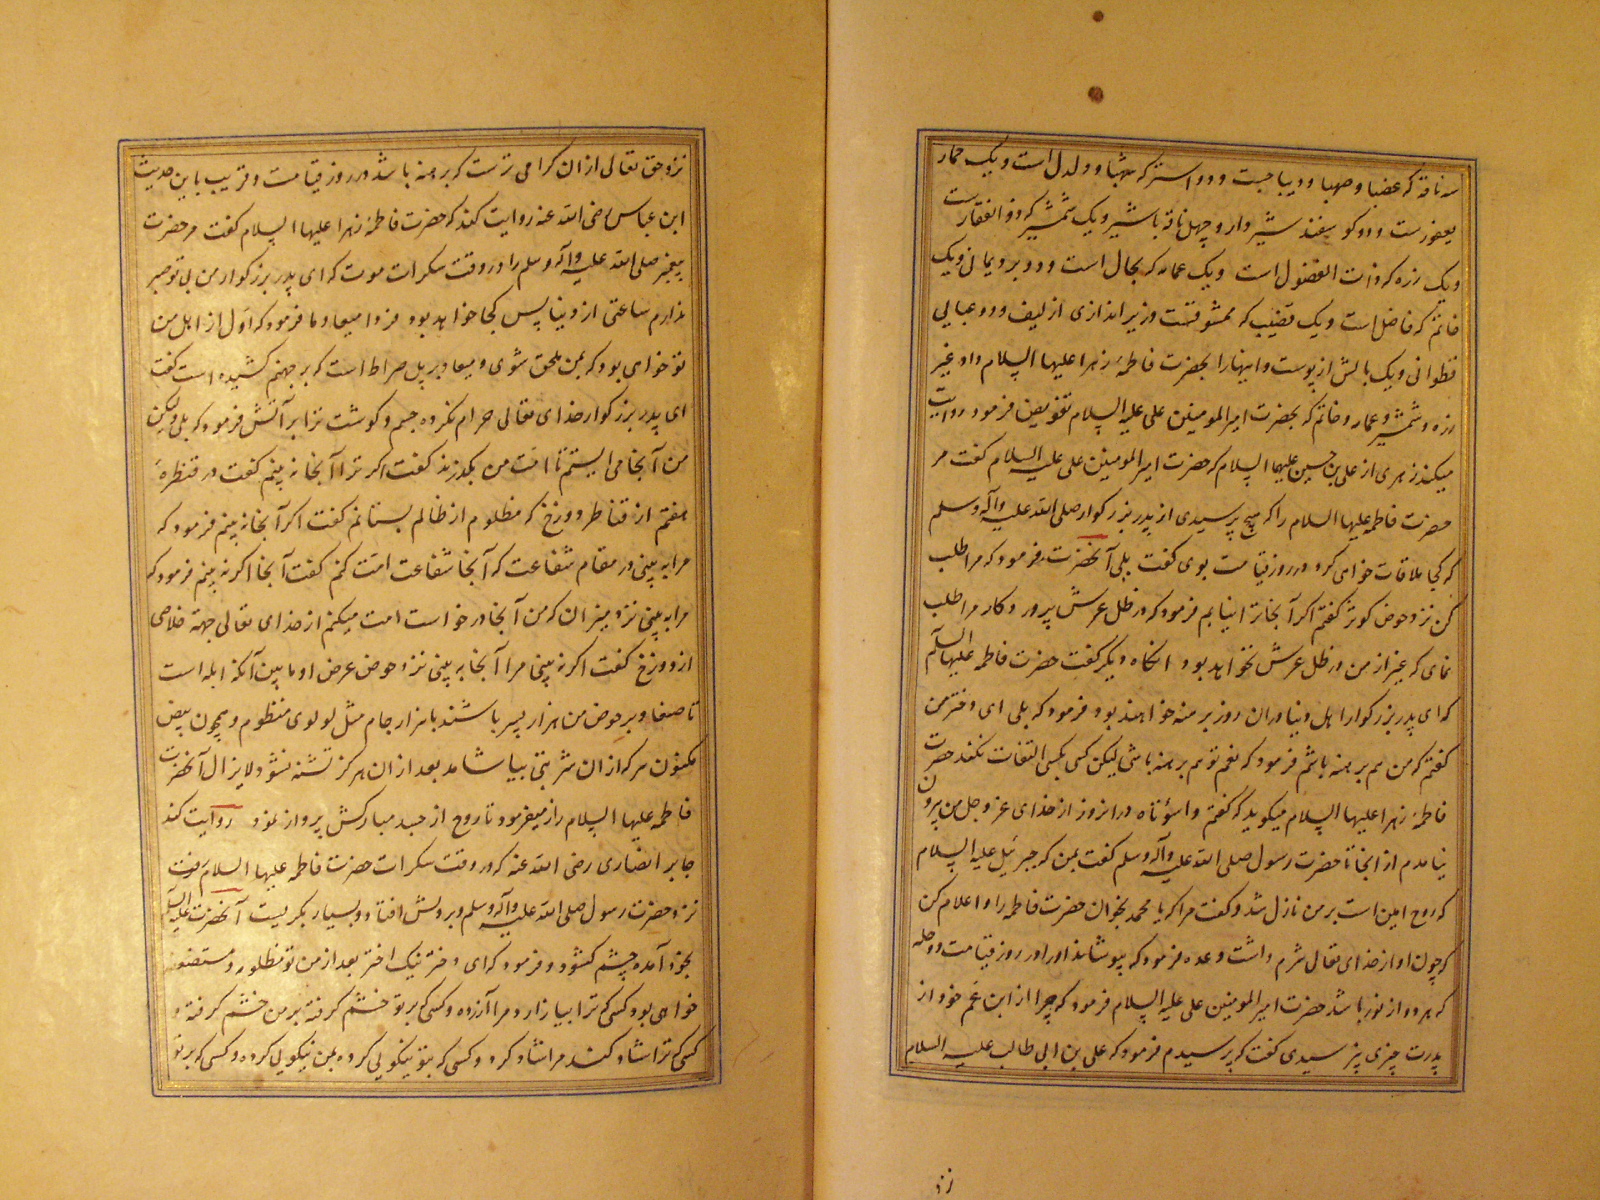 سه ناقه که عضبا و صهبا و دیباجست و دو استر که شهبا و دلدل است و یک حمار
یعفورست و دو کوسفند شیروار و چهل ناقه باشیر و یک شمشیر که ذوالفقارست
و یک زره که ذات الفضول است و یک عمامه که سحاب است و دو برد یمانی و یک
خاتم که فاضل است و یک قضیب که ممشوقست و زیر اندازی از لیف و دو عبائی
قطوانی و یک بالش از پوست و اینهارا بحضرت فاطمهٔ زهرا علیها السلام داد غیر
زره و شمشیر و عمامه و خاتم که بحضرت امیر المومنین علی علیه السلام تفویض فرمود روایت
میکند زهری از علی بن حسین علیهما السلام که حضرت امیر المومنین علی علیه السلام کفت مر
حضرت فاطمه علیها السلام را که هیچ پرسیدی از پدر بزرکوار صلی الله علیه وآله وسلم
که کجا ملاقات خواهی کرد در روز قیامت بوی کفت بلی آنحضرت فرمود که مرا طلب
کن نزد حوض کوثر کفتم اکر آنجا ترا نیابم فرمود که در ظل عرش پروردکار مرا طلب
نمای که غیر از من در ظل عرش نخواهد بود انکاه دیکر کفت حضرت فاطمه علیها السلام
که ای پدر بزرکوار اهل دنیا در ان روز برهنه خواهند بود فرمود که بلی ای دختر من
کفتم که من هم برهنه باشم فرمود که نعم تو هم برهنه باشی لیکن کسی بکسی التفات نکند حضرت
فاطمهٔ زهرا علیها السلام میکوید که کفتم واسوتاه در انروز از خدای عز وجل من بیرون
نیامدم از انجا تا حضرت رسول صلی الله علیه وآله وسلم کفت بمن که جبرئیل علیه السلام
که روح امین است بر من نازل شد و کفت مرا که یا محمد بخوان حضرت فاطمه را و اعلام کن
که چون او از خدای تعالی شرم داشت وعده فرمود که بپوشاند اورا در روز قیامت دو حله
که هر دو از نور باشد حضرت امیر المومنین علی علیه السلام فرمود که چرا از ابن عم خود از
پدرت چیزی نپرسیدی کفت که پرسیدم فرمود که علی بن ابی طالب علیه السلام
نزد
نزد حق تعالی از ان کرامی ترست که برهنه باشد در روز قیامت و قریب باین حدیث
ابن عباس رضی الله عنه روایت کند که حضرت فاطمهٔ زهرا علیها السلام کفت مر حضرت
پیغمبر صلی الله علیه وآله وسلم را در وقت سکرات موت که ای پدر بزرکوار من بی تو صبر
ندارم ساعتی از دنیا پس کجا خواهد بود فردا میعاد ما فرمود که اول از اهل من
تو خواهی بود که بمن ملحق شوی و میعاد بر پل صراط است که بر جهنم کشیده است کفت
ای پدر بزرکوار خدای تعالی حرام نکرده جسم و کوشت ترا بر آتش فرمود که بلی ولیکن
من آنجا می ایستم تا امت من بکدرند کفت اکر ترا آنجا نه بینم کفت در قنطرهٔ
هفتم از قناطر دوزخ که مظلوم از ظالم بستانم کفت اکر آنجا نه بینم فرمود که
مرا به بینی در مقام شفاعت که آنجا شفاعت امت کنم کفت آنجا اکر نه بینم فرمود که
مرا به بینی نزد میزان که من آنجا درخواست امت میکنم از خدای تعالی جهة خلاصی
از دوزخ کفت اکر نه بینی مرا آنجا به بینی نزد حوض عرض او ما بین آنکه ابله است
تا صنعا و بر حوض من هزار پسر باشند با هزار جام مثل لولوی منظوم و همچون بیض
مکنون هر که از ان شربتی بیاشامد بعد از ان هرکز تشنه نشود و لایزال آنحضرت
فاطمه علیها السلام را میفرمود تا روح از جسد مبارکش پرواز نمود روایت کند
جابر انصاری رضی الله عنه که در وقت سکرات حضرت فاطمه علیها السلام رفت
نزد حضرت رسول صلی الله علیه وآله وسلم و برویش افتاد و بسیار بکریست آنحضرت علیه السلم
بخود آمده چشم کشود و فرمود که ای دختر نیک اختر بعد از من تو مظلوم و مستضعف
خواهی بود کسی که ترا بیازارد مرا آزرده و کسی که بر تو خشم کرفته بر من خشم کرفته و
کسی که ترا شاد کند مرا شاد کرد و کسی که بتو نیکویی کرده بمن نیکویی کرده و کسی که بر تو